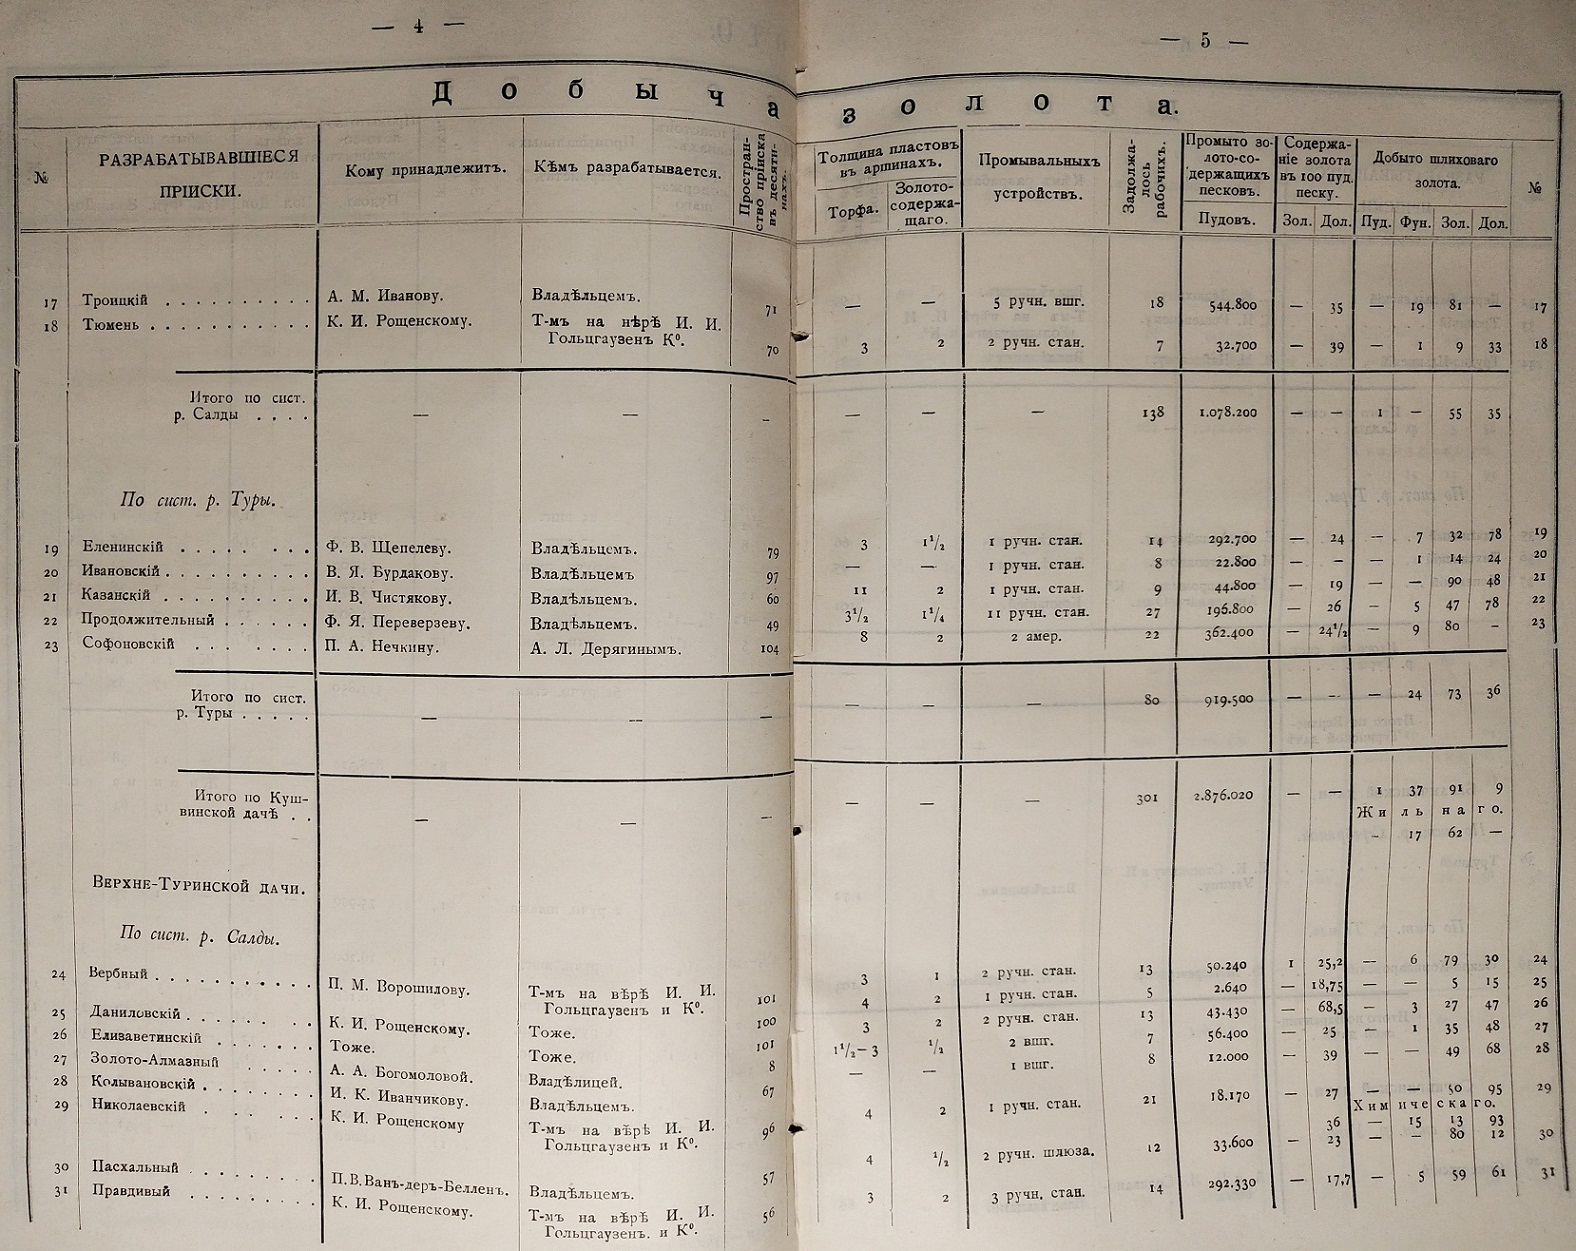 — 4 —
— 5 —
Добыча золота.
№ РАЗРАБАТЫВАВШІЕСЯ ПРІИСКИ. Кому принадлежитъ. Кѣмъ разрабатывается. Простран-ство пріиска въ десяти-нахъ. Толщина пластовъ въ аршинахъ. Промывальныхъ устройствъ. Задолжа-лось рабочихъ. Промыто зо-лото-со-держащихъ песковъ. Содержа-ніе золота въ 100 пуд. песку. Добыто шлиховаго золота. №
Торфа. Золото-содержа-щаго. Пудовъ. Зол. Дол. Пуд. Фун. Зол. Дол.
17 Троицкій . . . . . . . . . . А. М. Иванову. Владѣльцемъ. 71 — — 5 ручн. вшг. 18 544.800 — 35 — 19 81 — 17
18 Тюмень . . . . . . . . . . . К. И. Рощенскому. Т-мъ на нѣрѣ И. И.
Гольцгаузенъ К⁰. 70 3 2 2 ручн. стан. 7 32.700 — 39 — 1 9 33 18
Итого по сист.
р. Салды . . . . — — – — — — 138 1.078.200 — — 1 — 55 35
По сист. р. Туры.
19 Еленинскій . . . . . . . . Ф. В. Щепелеву. Владѣльцемъ. 79 3 1½ 1 ручн. стан. 14 292.700 — 24 — 7 32 78 19
20 Ивановскій . . . . . . . . . . В. Я. Бурдакову. Владѣльцемъ 97 — — 1 ручн. стан. 8 22.800 — – — 1 14 24 20
21 Казанскій . . . . . . . . . . И. В. Чистякову. Владѣльцемъ. 60 11 2 1 ручн. стан. 9 44.800 — 19 — — 90 48 21
22 Продолжительный . . . . . . Ф. Я. Переверзеву. Владѣльцемъ. 49 3½ 1¼ 11 ручн. стан. 27 196.800 — 26 – 5 47 78 22
23 Софоновскій . . . . . . . П. А. Нечкину. А. Л. Дерягинымъ. 104 8 2 2 амер. 22 362.400 — 24½ — 9 80 – 23
Итого по сист.
р. Туры . . . . . — — — — — — 80 919.500 — — — 24 73 36
Итого по Куш-
винской дачѣ . . — — — — — — 301 2.876.020 — — 1 37 91 9
Жильнаго.
– 17 62 —
ВЕРХНЕ-ТУРИНСКОЙ ДАЧИ.
По сист. р. Салды.
24 Вербный . . . . . . . . . . . П. М. Ворошилову. Т-мъ на вѣрѣ И. И.
Гольцгаузенъ и К⁰. 101 3 1 2 ручн. стан. 13 50.240 1 25,2 — 6 79 30 24
25 Даниловскій . . . . . . . . К. И. Рощенскому. Тоже. 100 4 2 1 ручн. стан. 5 2.640 — 18,75 — — 5 15 25
26 Елизаветинскій . . . . . . . Тоже. Тоже. 101 3 2 2 ручн. стан. 13 43.430 — 68,5 – 3 27 47 26
27 Золото-Алмазный . . . . . А. А. Богомоловой. Владѣлицей. 8 1½–3 ½ 2 вшг. 7 56.400 — 25 — 1 35 48 27
28 Колывановскій . . . . . . . . И. К. Иванчикову. Владѣльцемъ. 67 — — 1 вшг. 8 12.000 — 39 — — 49 68 28
29 Николаевскій . . . . . . К. И. Рощенскому Т-мъ на вѣрѣ И. И.
Гольцгаузенъ и К⁰. 96 4 2 1 ручн. стан. 21 18.170 — 27 — — 50 95 29
Химическаго.
36 — 15 13 93
30 Пасхальный . . . . . . . . П.В.Ванъ-деръ-Белленъ. Владѣльцемъ. 57 4 ½ 2 ручн. шлюза. 12 33.600 — 23 – – 80 12 30
31 Правдивый . . . . . . . . . К. И. Рощенскому. Т-мъ на вѣрѣ И. И.
Гольцгаузенъ. и К⁰. 56 3 2 3 ручн. стан. 14 292.330 — 17,7 — 5 59 61 31